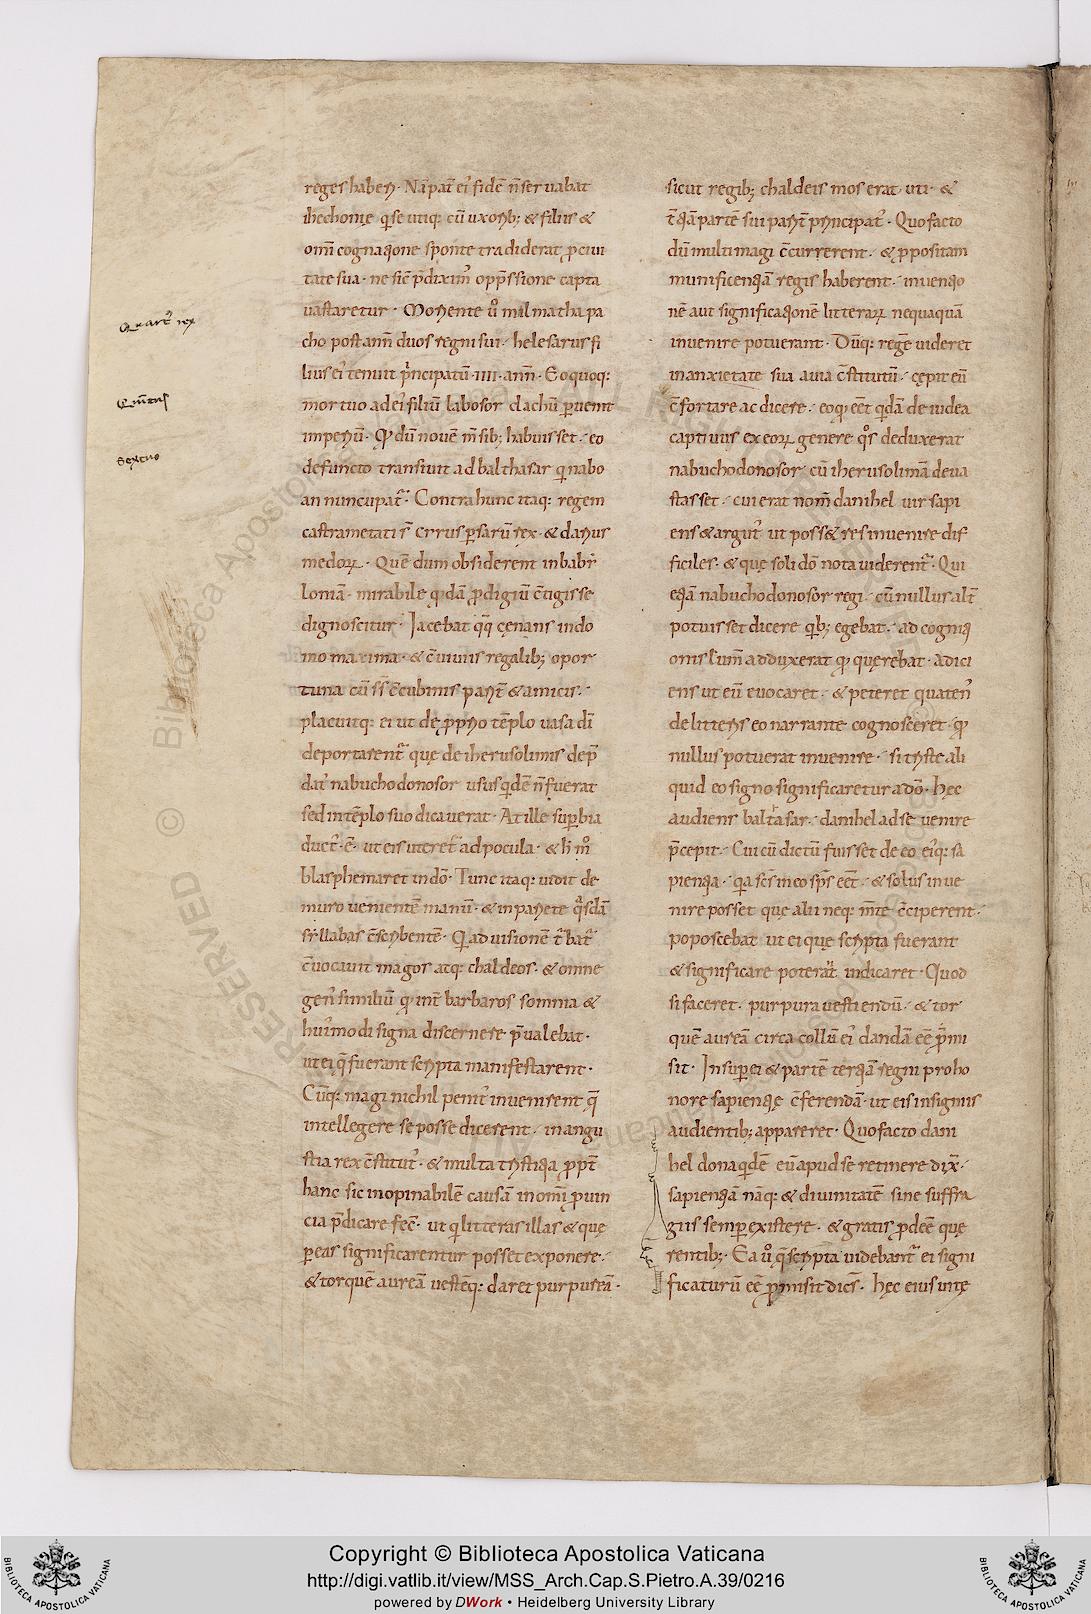 Quart᷒ rex
Quint᷒
Sextus
reges haberi. Nā pat̄ ei᷒ fidē n̄ seruabat
ihechonię q̇ se utiq; cū uxorib; & filiis &
om̄i cognatione sponte tradiderat ꝓ ciui
tate sua. ne sic̄ p̄dixim᷒ opp̄ssione capta
uastaretur. Moriente u̇ milmathapa
cho post ann̄ duos regni sui. helesarus fi
lius ei᷒ tenuit p̄ncipatū .IIII. ann̄. Eoquoq;
mortuo ad ei᷒ filiū labosordachū ꝑuenit
imperiū. Qď dū nouē m̄sib; habuisset. eo
defuncto transiuit ad balthasar qui nabo
an nuncupat᷒. Contra hunc itaq; regem
castrametati s̄ cyrus ꝑsarū rex & darius
medoꝝ. Quē dum obsiderent in baby
loniā. mirabile qďdā ꝓdigiū c̄tigisse
dignoscitur. Iacebat q̇q; cęnans in do
mo maxima. & c̄uiuiis regalib; opor
tuna cū s̄s c̄cubinis parit̄ & amicis.
placuitq; ei ut de ꝓprio tēplo uasa dī
deportarent᷒ quę de iherusolimis dep̄
dat᷒ nabuchodonosor usus qidē n̄ fuerat
sed in tēplo suo dicauerat. At ille suꝑbia
duct᷒ .ē. ut eis uteret᷒ ad pocula. & h̄ m̊
blasphemaret in dō. Tunc itaq; uidit de
muro uenientē manū. & in pariete q̇sdā
syllabas c̄scribentē. Qi ad uisionē t᷒bat᷒
c̄uocauit magos atq; chaldeos. & omne
gen᷒ similiū qď int̄ barbaros somnia &
hui᷒modi signa discernere p̄ualebat.
ut ei q̄ fuerant scripta manifestarent.
Cūq; magi nichil penit᷒ inuenirent q̄
intellegere se posse dicerent. in angu
stia rex c̄stitut᷒. & multa tristitia ꝓpt̄
hanc sic inopinabilē causā in om̄i ꝓuin
cia p̄dicare fec̄. ut qi litteras illas & quę
ꝑ eas significarentur posset exponere.
& torquē aureā uestēq; daret purpureā.
sicut regib; chaldeis mos erat uti. &
t̄tiā partē sui parit̄ principat᷒. Quo facto
dū multi magi c̄currerent. & ꝓpositam
munificentiā regis haberent. inuentio
nē aut significationē litteraꝝ nequaquā
inuenire potuerant. Dūq; regē uideret
in anxietate sua auia c̄stitutū. cępit eū
c̄fortare ac dicere. eo qď eēt qidā de iudea
captiuus ex eoꝝ genere q̇s deduxerat
nabuchodonosor. cū iherusolimā deua
stasset. cui erat nom̄ danihel uir sapi
ens & argut᷒ ut poss& res inuenire dif
ficiles. & quę soli dō nota uiderent᷒. Qui
etiā nabuchodonosor regi. cū nullus alt̄
potuisset dicere qib; egebat. ad cogniti
onis lum̄ adduxerat qď quęrebat. adici
ens ut eū euocaret. & peteret quaten᷒
de litteris eo narrante cognosceret. qď
nullus potuerat inuenire. si triste ali
quid eo signo significaretur a dō. Hęc
audiens baltasar. danihel ad se uenire
p̄cepit. Cui cū dictū fuisset de eo ei᷒q; sa
pientia. qa sc̄s in eo sp̄s eēt. & solus inue
nire posset quę alii neq; m̄te c̄ciperent.
poposcebat ut ei quę scripta fuerant
& significare poterat indicaret. Quod
si faceret. purpura uestiendū. & tor
quē aureā circa collū ei᷒ dandā eē p̄mi
sit. Insuꝑ ei & partē tertiā regni pro ho
nore sapientię c̄ferendā. ut eis insignis
audientib; appareret. Quo facto dani
hel dona qidē eū apud se retinere dix̄.
sapientiā nāq; & diuinitatē sine suffra
giis semꝑ existere. & gratis ꝓdeē quę
rentib;. Ea u̇ q̄ scripta uidebant᷒ ei signi
ficaturū eē ꝓmisit dicēs. hęc eius uitę
Copyright © Biblioteca Apostolica Vaticana
http://digi.vatlib.it/view/MSS_Arch.Cap.S.Pietro.A.39/0216
powered by DWork • Heidelberg University Library